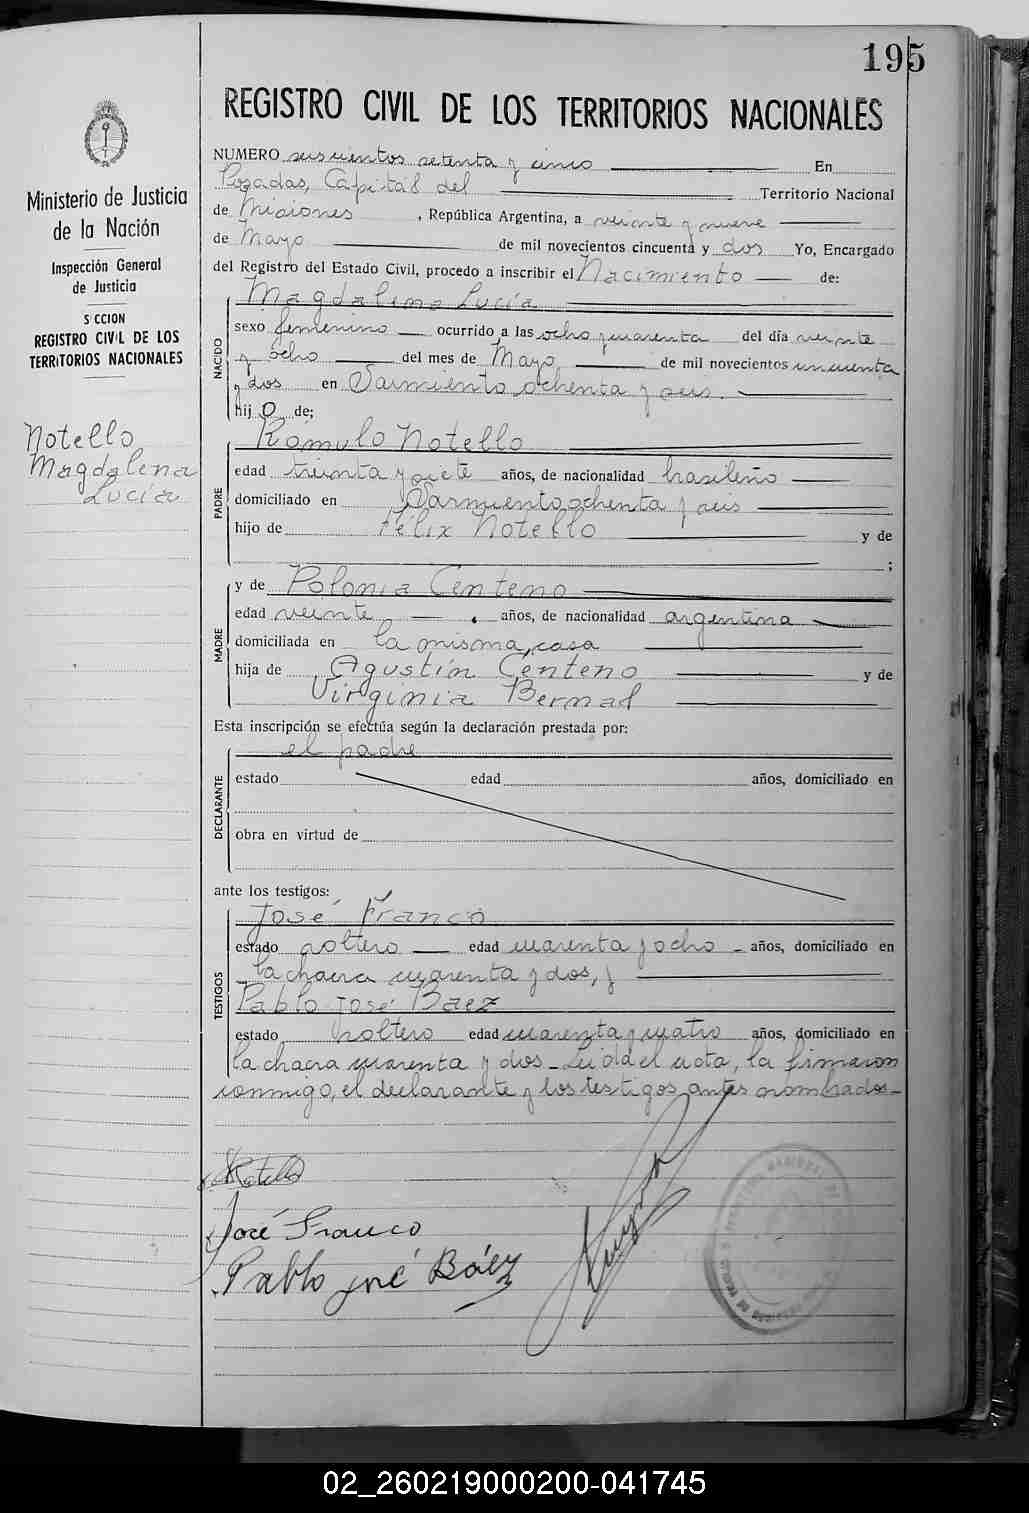 195
REGISTRO CIVIL DE LOS TERRITORIOS NACIONALES
Ministerio de Justicia
de la Nación
Inspección General
de Justicia
S CCION
REGISTRO CIVIL DE LOS
TERRITORIOS NACIONALES
Notello
Magdalena
Lucía
NUMERO seiscientos setenta y cinco En
Posadas, Capital del Territorio Nacional
de Misiones, República Argentina, a veinte y nueve
de Mayo de mil novecientos cincuenta y dos Yo, Encargado
del Registro del Estado Civil, procedo a inscribir el Nacimiento de:
NACIDO
Magdalena Lucía
sexo femenino ocurrido a las ocho y cuarenta del día veinte
y ocho del mes de Mayo de mil novecientos cincuenta
y dos en Sarmiento ochenta y seis.
hij a de;
PADRE
Rómulo Notello
edad treinta y siete años, de nacionalidad brasileño
domiciliado en Sarmiento ochenta y seis
hijo de Félix Notello y de
;
MADRE
y de Polonia Centeno
edad veinte años, de nacionalidad argentina
domiciliada en la misma casa
hija de Agustín Centeno y de
Virginia Bernal
Esta inscripción se efectúa según la declaración prestada por:
DECLARANTE
el padre
estado edad años, domiciliado en
obra en virtud de
ante los testigos:
TESTIGOS
José Franco
estado soltero edad cuarenta y ocho - años, domiciliado en
la chacra cuarenta y dos, y
Pablo José Baez
estado soltero edad cuarenta y cuatro años, domiciliado en
la chacra cuarenta y dos - Leída el acta, la firmaron
conmigo, el declarante y los testigos antes nombrados -
RNotello
José Franco
Pablo José Báez
02_260219000200-041745